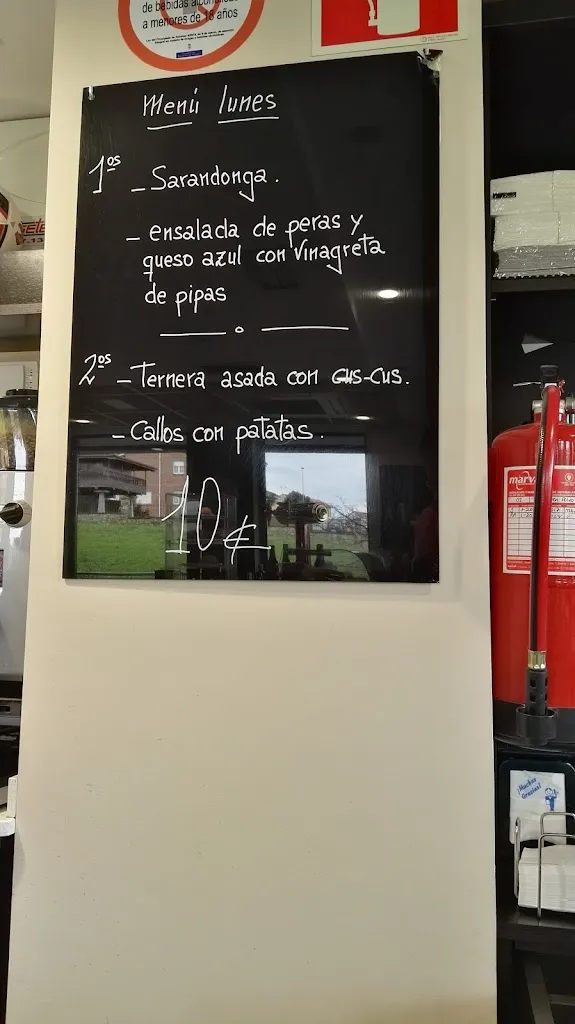 de bebidas alcohólicas
a menores de 18 años
Menú lunes
1os - Sarandonga.
- ensalada de peras y
queso azul con vinagreta
de pipas
2os - Ternera asada con cus-cus.
- Callos con patatas.
10 €
¡Muchas
Gracias!